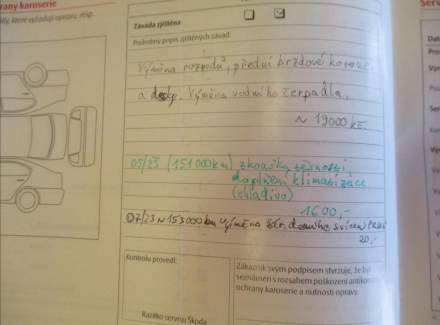 rany karoserie
Závada zjištěna
Podrobný popis zjištěných závad:
Výměna rozvodů, přední brzdové kotouče
a desky. Výměna vodního čerpadla.
~ 19000 kč.
05/23 (151 000 km) zkouška těsnosti,
doplnění klimatizace
(chladivo)
1600,-
07/23 ~ 153000 km výměna
20,-
Kontrolu provedl:
Zákazník svým podpisem stvrzuje, že byl
seznámen s rozsahem poškození antikorozní
ochrany karoserie a nutností opravy.
Razítko servisu Škoda